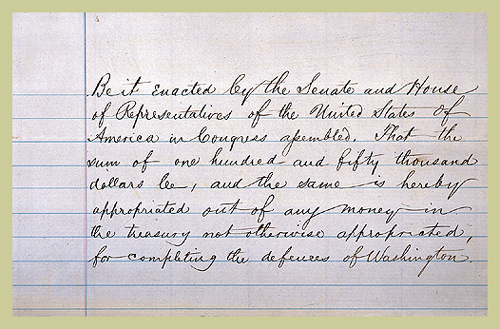 Be it enacted by the Senate and House
of Representatives of the United States of
America in Congress assembled, That the
sum of one hundred and fifty thousand
dollars be, and the same is hereby
appropriated out of any money in
the treasury not otherwise appropriated,
for completing the defences of Washington.